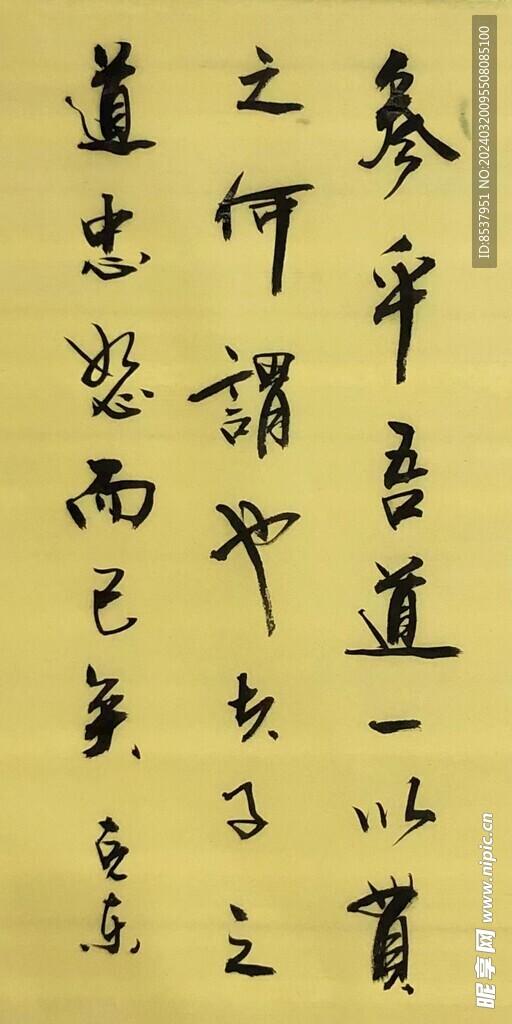 參乎吾道一以貫
之何謂也夫子之
道忠恕而已矣
克东
ID:8537951 NO:20240320095508085100
昵享网 www.nipic.cn